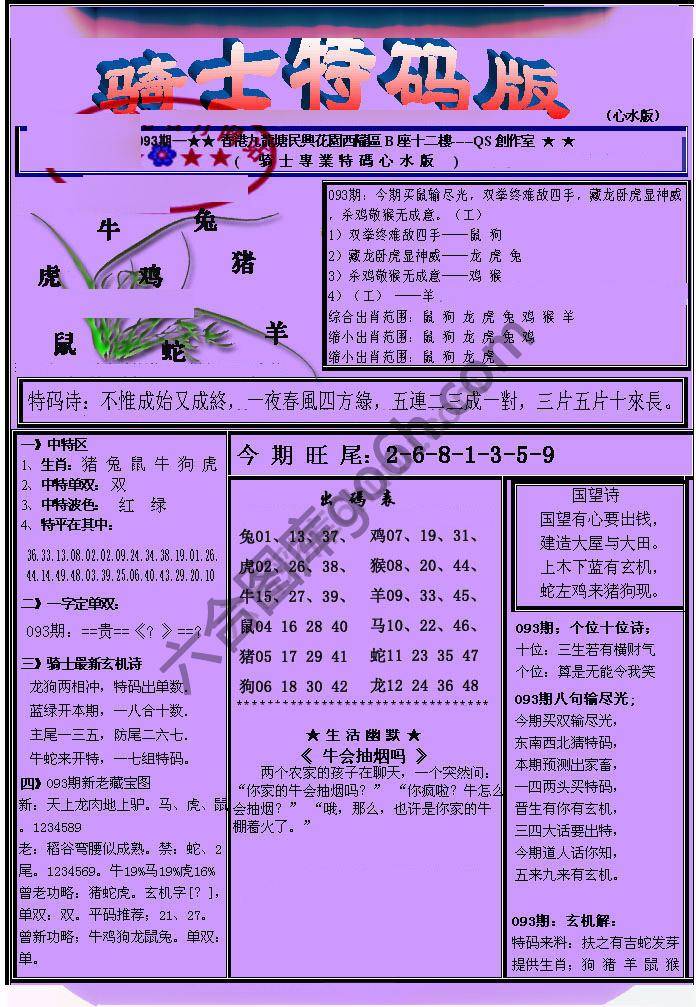 骑士特码版
（心水版）
093期一★★ 香港九龍塘民興花園西福區B座十二樓----QS創作室 ★ ★
( 騎士專業特碼心水版 )
牛
兔
虎
鸡
猪
鼠
蛇
羊
093期：今期买鼠输尽光，双拳终难敌四手，藏龙卧虎显神威
，杀鸡敬猴无成意。（工）
1）双拳终难敌四手——鼠 狗
2）藏龙卧虎显神威——龙 虎 兔
3）杀鸡敬猴无成意——鸡 猴
4）（工） ——羊
综合出肖范围：鼠 狗 龙 虎 兔 鸡 猴 羊
缩小出肖范围：鼠 狗 龙 虎 兔 鸡
缩小出肖范围：鼠 狗 龙 虎
特码诗：不惟成始又成終，一夜春風四方綠，五連二三成一對，三片五片十來長。
一》中特区
1、生肖：猪 兔 鼠 牛 狗 虎
2、中特单双：双
3、中特波色： 红 绿
4、特平在其中：
36.33.13.08.02.02.09.24.34.38.19.01.26.
44.14.49.48.03.39.25.06.40.43.29.20.10
二》一字定单双：
093期：==贵==《？》==？
三》骑士最新玄机诗
龙狗两相冲，特码出单数．
蓝绿开本期，一八合十数．
主尾一三五，防尾二六七．
牛蛇来开特，一七组特码。
四》093期新老藏宝图
新：天上龙肉地上驴。马、虎、鼠
。1234589
老：稻谷弯腰似成熟。禁：蛇、2
尾。1234569。牛19%马19%虎16%
曾老功略：猪蛇虎。玄机字[？]，
单双：双。平码推荐；21、27。
曾新功略；牛鸡狗龙鼠兔。单双：
单。
今 期 旺 尾：2-6-8-1-3-5-9
出 码 表
兔01、13、37、 鸡07、19、31、
虎02、26、38、 猴08、20、44、
牛15、27、39、 羊09、33、45、
鼠04 16 28 40 马10、22、46、
猪05 17 29 41 蛇11 23 35 47
狗06 18 30 42 龙12 24 36 48
********************************
★ 生 活 幽 默 ★
《 牛会抽烟吗 》
两个农家的孩子在聊天，一个突然问：
“你家的牛会抽烟吗？” “你疯啦？牛怎么
会抽烟？” “哦，那么，也许是你家的牛
棚着火了。”
国望诗
国望有心要出钱，
建造大屋与大田。
上木下蓝有玄机，
蛇左鸡来猪狗现。
093期；个位十位诗；
十位：三生若有横财气
个位：算是无能令我笑
093期八句输尽光；
今期买双输尽光，
东南西北猜特码，
本期预测出家畜，
一四两头买特码，
晋生有你有玄机，
三四大话要出特，
今期道人话你知，
五来九来有玄机。
093期：玄机解：
特码来料：扶之有吉蛇发芽
提供生肖；狗 猪 羊 鼠 猴
六合图库go6h.com